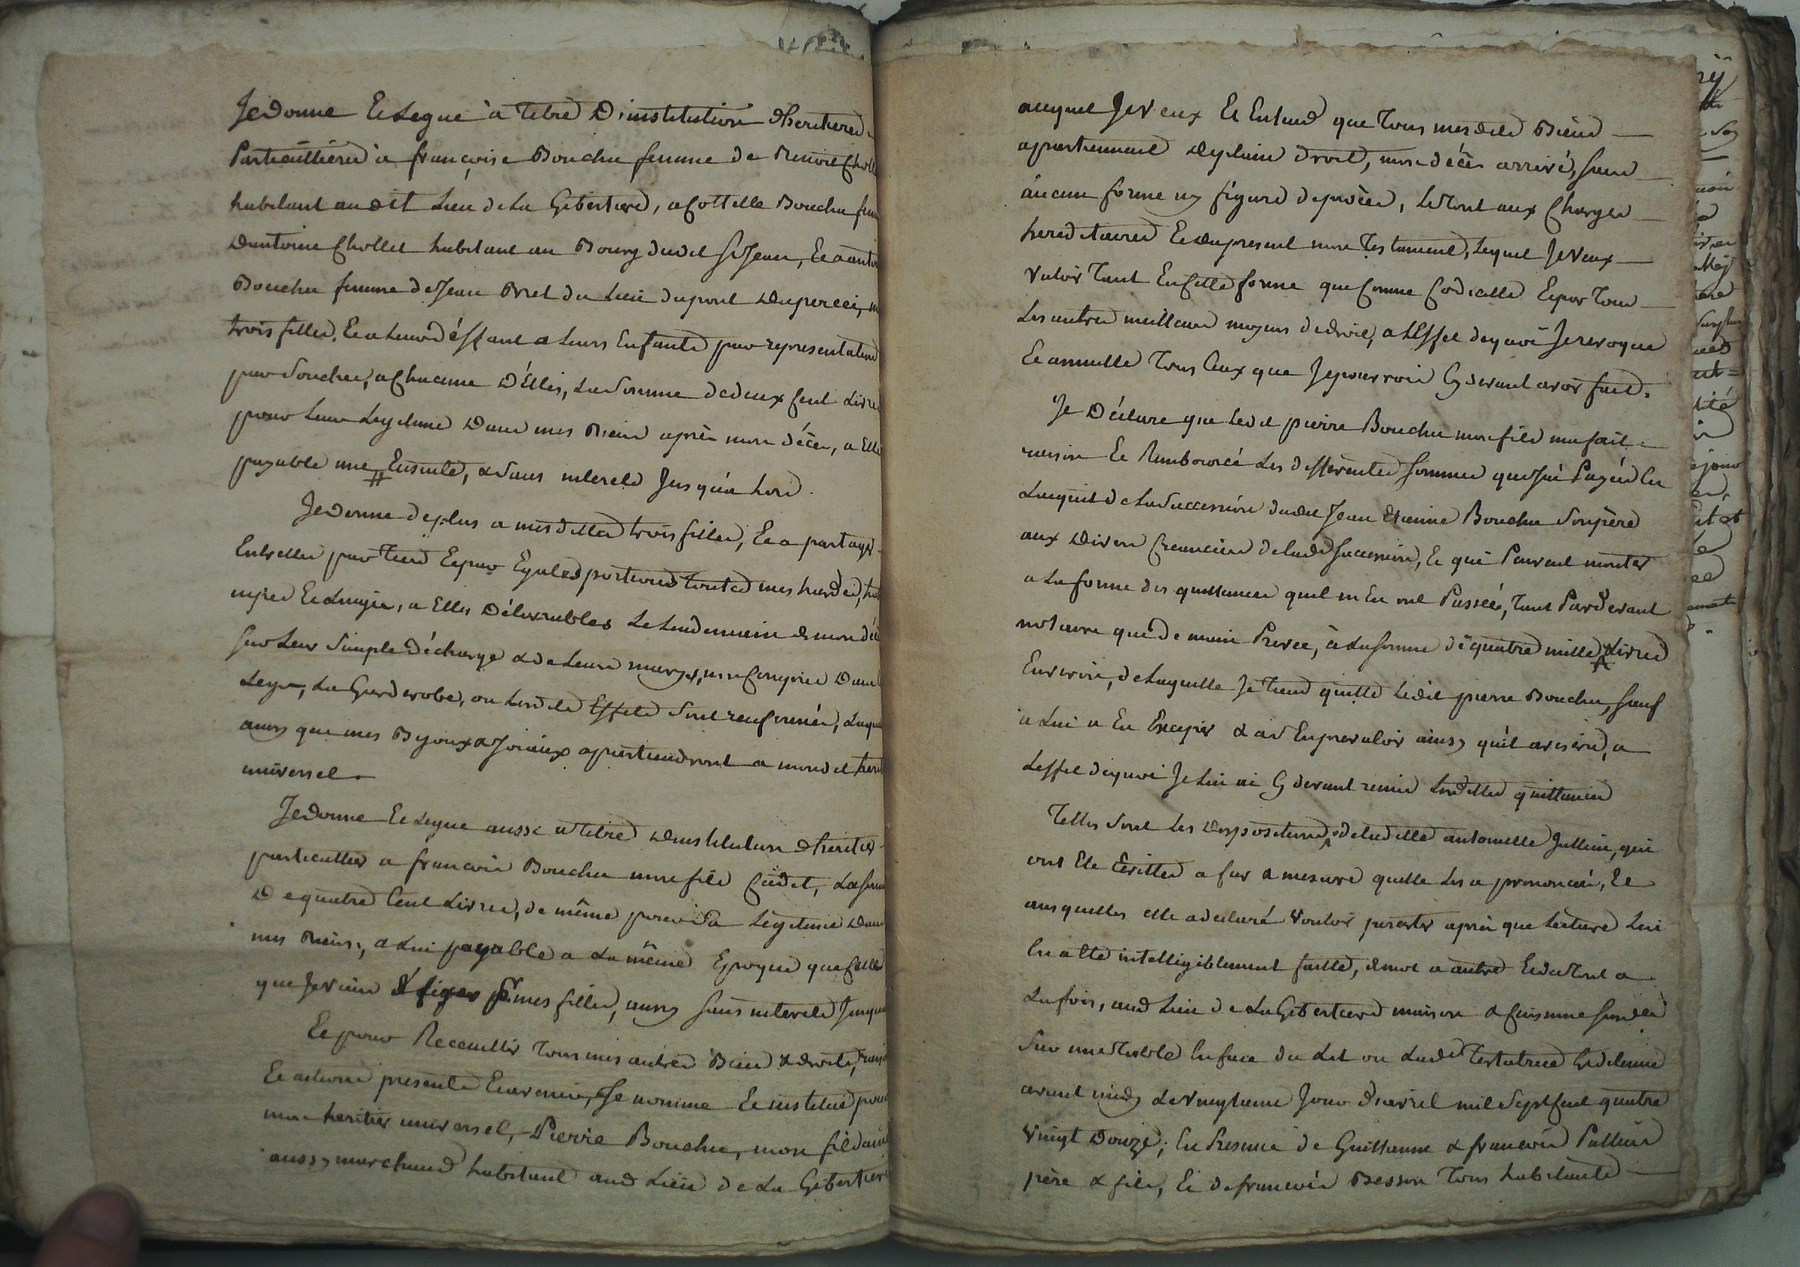 Je donne Et Legue à titre D'institution dheritiere
Particulliere à françoise Bouchu femme de Benoit Choll
habitant au dit Lieu de La Gibertiere, a Cottelle Bouchu fem
Dantoine Chollet habitant au Bourg dudit St Jean, Et a anto
Bouchu femme de Jean Bret du Lieu du pont
trois filles, Et a Leur déffaut a Leurs Enfants par representation
par Souche, a Chacune D'Elles, La Somme de deux Cent Livre
pour Leur Legitime Dans mes Biens après mon décès, a Elle
payable une Ensuite, & sans interets Jusqu'a Lors.
Je donne de plus a mesdittes trois filles, Et a partager
Entrelles par tiers Et par Egales portions toutes mes hardes,
nipes Et Linges, a Elles Délivrables Le Lendemain de mon déc
sur Leur Simple décharge & de Leurs marys, non Comprise Dans
Legs, La Garderobe, ou Lesdits Effets sont renfermés, Laque
ainsy que mes Byoux & Joiaux apartiendront a mondit heri
universel.
Je donne Et Legue aussi a titre Dinstitution dheritier
particullier a francois Bouchu mon fils Cadet, La som
De quatre Cent Livres, de même pour Sa Legitime Dans
mes Biens, a Lui payable a La même Epoque que Celle
que Je viens de fixer pr mes filles, aussy sans interets Jusqu
Et pour Recceuillir tous mes autres Biens & droits,
Et actions presents Et avenir, Je nomme Et institue pour
mon heritier universel, Pierre Bouchu, mon fils ainé
aussy marchand habitant aud Lieu de La Gibertiere
auquel Je Veux Et Entend que tous mesdits Biens
apartiennent de plain droit, mon décès arrivé, sans
aucune forme ny figure de procès, Le tout aux Charges
hereditaires Et du present mon Testament, Lequel Je Veux
Valoir tant En Cette forme que Comme Codicille Et par tous
Les autres meilleurs moyens de droit, a L'Effet de quoi Je revoque
Et annulle tous Ceux que Je pourrois Cy devant avoir fait.
Je Déclare que Ledit pierre Bouchu mon fils ma fait
raison Et Remboursé Les differentes sommes que J'ai Payés En
Lacquit de La Succession dudit Jean Etienne Bouchu Son père
aux Divers Creanciers de Ladte Succession, Ce qui Peuvent monter
a La forme des quittances quil m'En ont Passées, tant Pardevant
notaire que de main Privée, à La somme de quatre mille Livres
Environ, de Laquelle Je tiens quitte Ledit pierre Bouchu, sauf
a Lui a En Excepter & a s'En prevaloir ainsy qu'il avisera, a
Leffet de quoi Je Lui ai Cy devant remis Lesdittes quittances
Telles sont Les Dispositions de Laditte antoinette Jullien, qui
ont Eté Ecrittes a fur & mesure quelle Les a prononcées, Et
ausquelles elle a déclaré vouloir persister après que Lecture Lui
En a Eté intelligiblement faitte, de mot a autre Et du tout a
La fois, aud Lieu de La Gibertiere maison & Cuisine
Sur une table En face du Lit ou Ladte Testatrice
avant midy Le vingtieme Jour d'avril mil Sept Cent quatre
Vingt Douze; En Presence de Guillaume & francois Pallien
père & fils, Et de francois Besson tous habitants